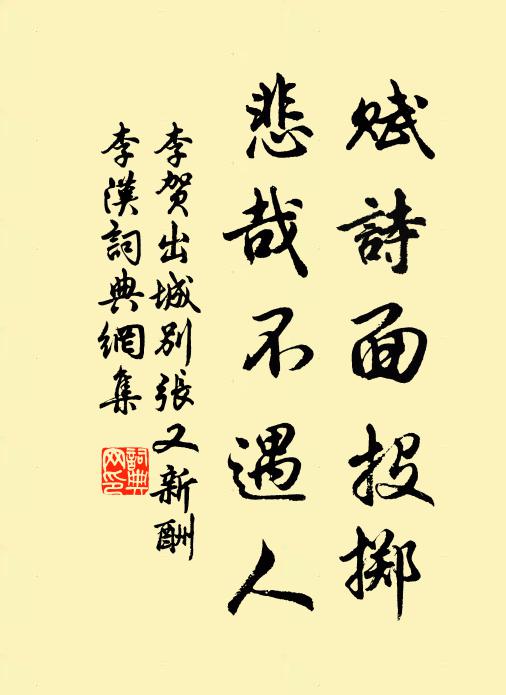 賦詩面投擲
悲哉不遇人
李賀出城別張又新酬
李漢詞典網集
詞典網印